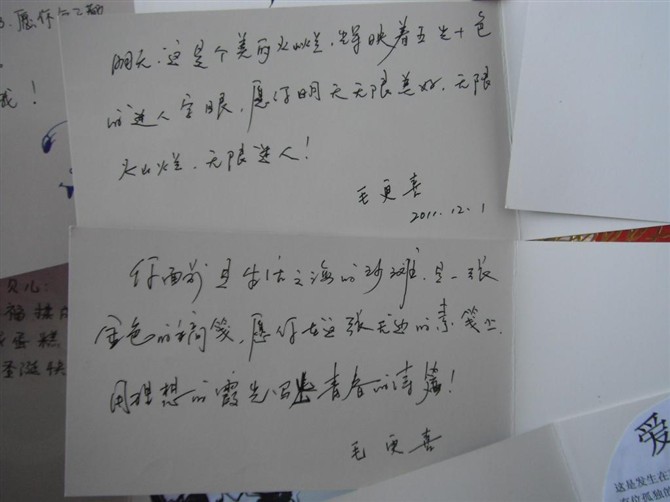 愿你
明天,这是个美的火山烂,辉映着五光十色
的迷人字眼,愿你明天无限美好,无限
火山烂,无限迷人!
毛更喜
2011.12.1
我!
你面前是生活之海的沙滩,是一张
金色的稿笺,愿你在这张无边的素笺上,
用理想的霞光写出青春的诗篇!
毛更喜
贝儿:
福
蛋糕
圣诞快
爱
这是发生在
有位孤独的